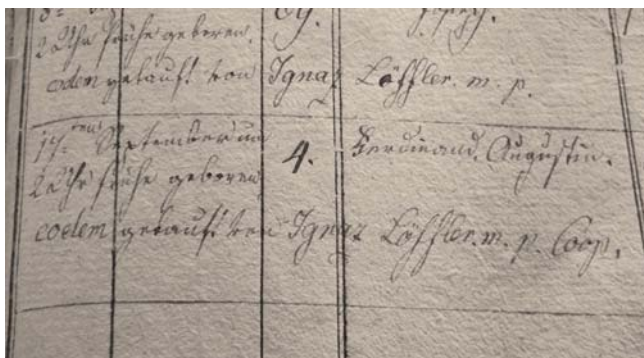 2 Uhr frühe geboren.
eodem getauft von Ignaz Löffler. m. p.
17ten September um 4. Ferdinand. Augustin.
2 Uhr frühe geboren
eodem getauft von Ignaz Löffler. m. p. Coop.